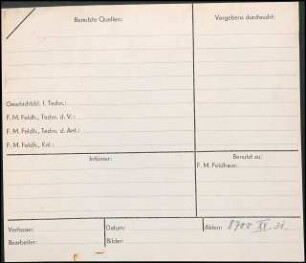 Benutzte Quellen:
Vergebens durchsucht:
Geschichtsbl. f. Techn.:
F. M. Feldh., Techn. d. V.:
F. M. Feldh., Techn. d. Ant.:
F. M. Feldh., Kal.:
Inticner:
Benutzt zu:
F. M. Feldhaus:
Verfasser:
Datum:
Akten: 8700 XI. 31.
Bearbeiter:
Bilder: